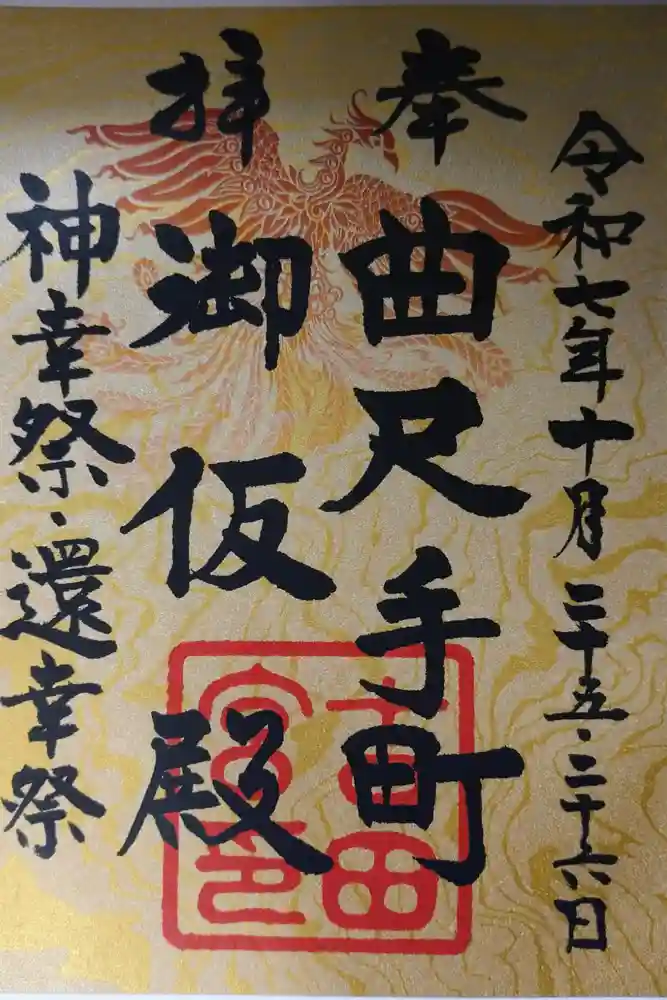 令和七年十月二十五・二十六日
奉拝
曲尺手町
御仮殿
神幸祭・還幸祭
吉田
宮印